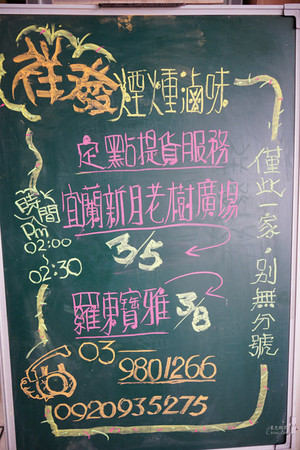 祥發煙燻滷味
定點提貨服務
宜蘭新月老樹廣場
3/5
羅東寶雅 3/8
時間
Pm
02:00
~
02:30
僅此一家,別無分號
03-9801266
0920935275